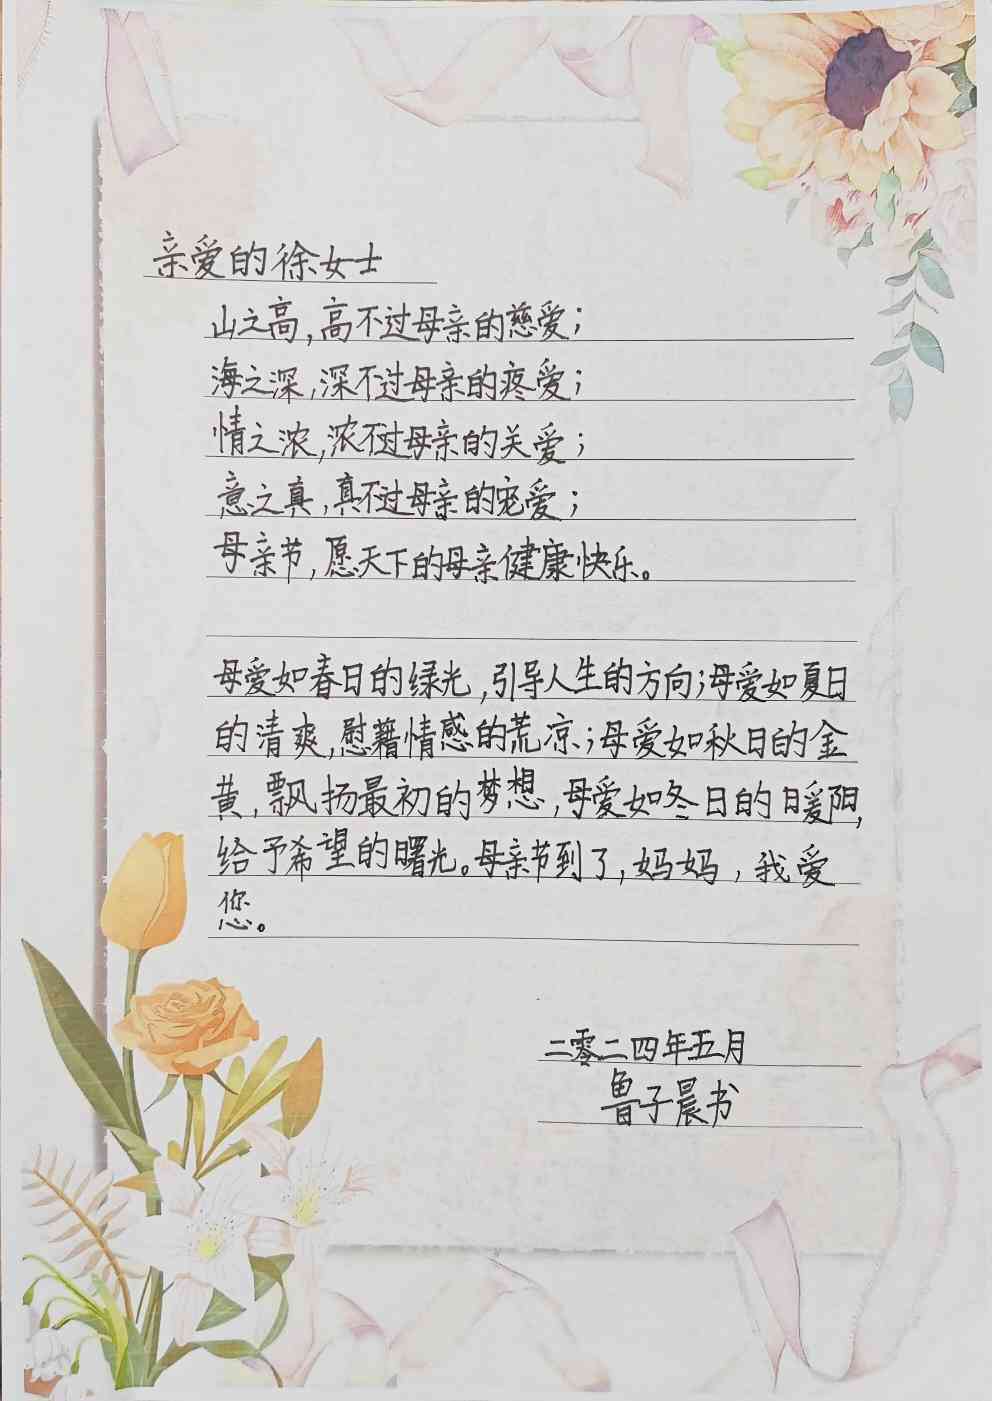 亲爱的徐女士
山之高,高不过母亲的慈爱;
海之深,深不过母亲的疼爱;
情之浓,浓不过母亲的关爱;
意之真,真不过母亲的宠爱;
母亲节,愿天下的母亲健康快乐。
母爱如春日的绿光,引导人生的方向;母爱如夏日
的清爽,慰藉情感的荒凉;母爱如秋日的金
黄,飘扬最初的梦想,母爱如冬日的暖阳,
给予希望的曙光。母亲节到了,妈妈,我爱
您。
二零二四年五月
鲁子晨书